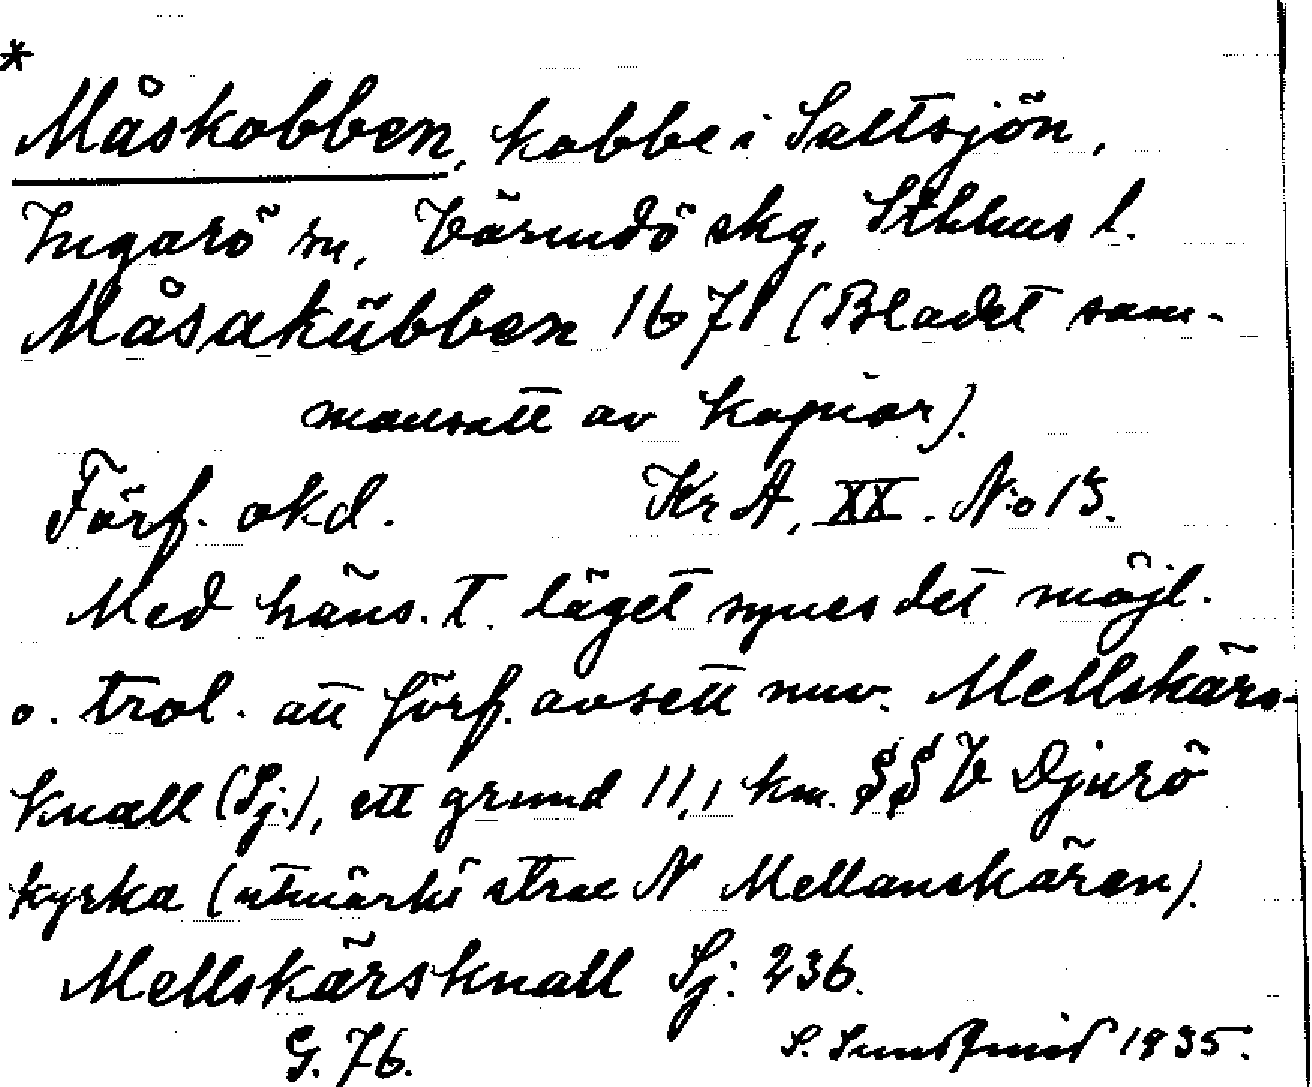 *
Måskobben, kobbe i Saltsjön,
Ingarö sn, Värmdö skg, Sthlms l.
Måsakübben 1671 (Bladet sam-
mansatt av kopior).
Förf. okd. Kr A, XX. No 13.
Med häns. t. läget synes det möjl.
o. trol. att förf. avsett nuv. Mellskärs-
knall (Sj.), ett grund 11,1 km. SSV Djurö
kyrka (utmärkt strax N Mellanskären).
Mellskärsknall Sj: 236.
G. 76. S. Sundqvist 1935.